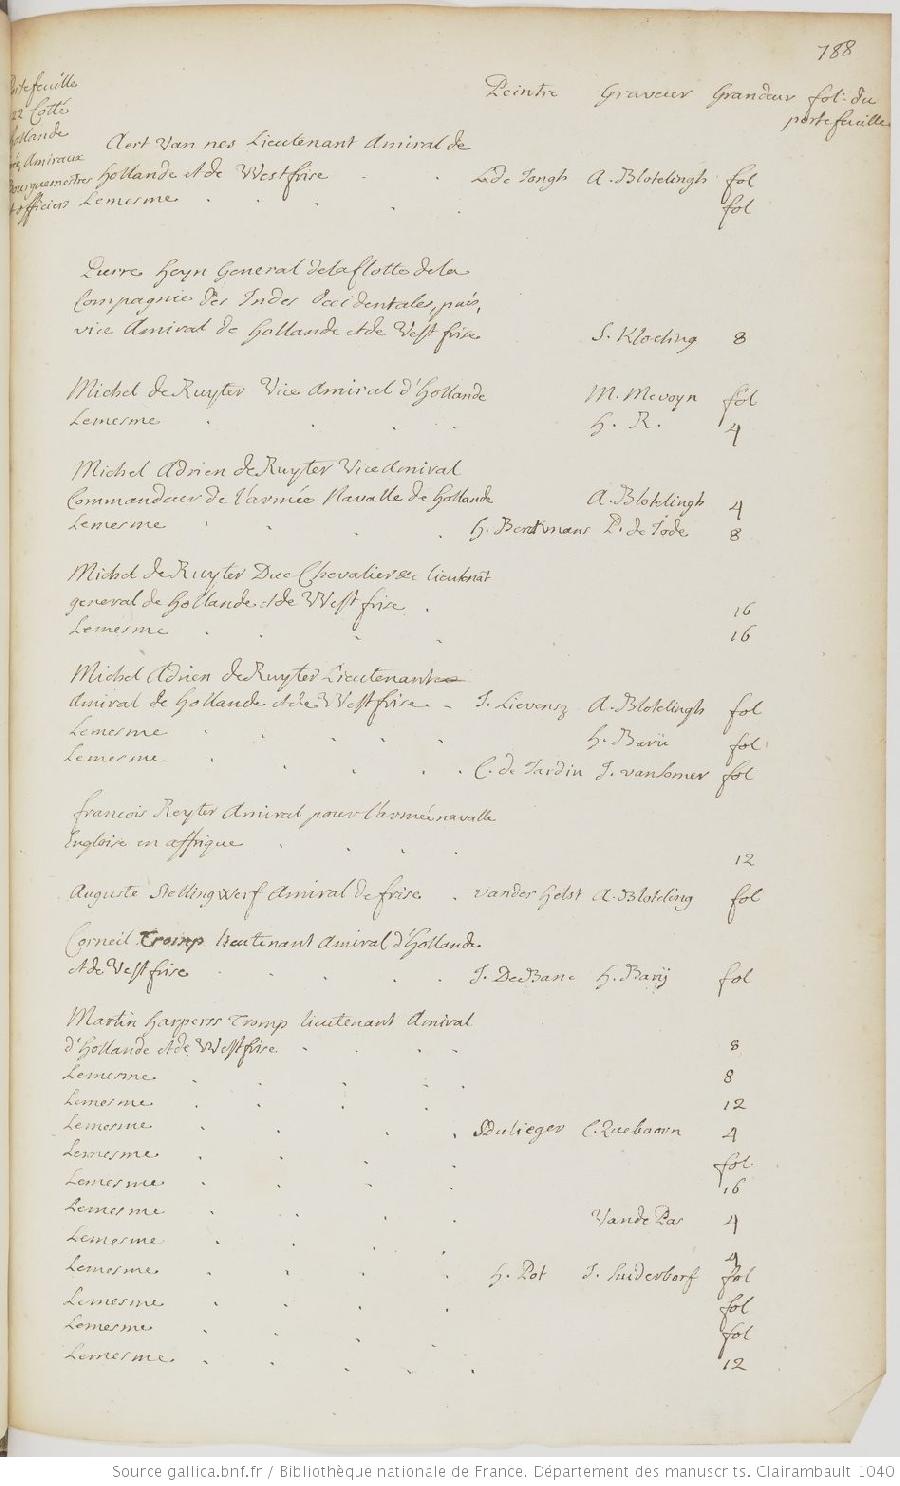 788
Peintre Graveur Grandeur fol. du
portefeuille
Cotté
hollande
Amiraux
Bourguemestres
officiers
Aert Van nes Lieutenant Amiral de
hollande et de Westfrise L. de Jongh A. Blotelingh fol
Lemesme fol
Pierre heyn General de la flotte de la
Compagnie des Indes Occidentales, puis,
vice Amiral de hollande et de West frise S. Kloeting 8
Michel de Ruyter Vice Amiral d'hollande M. Mevoyn fol
Lemesme h. R. 4
Michel Adrien de Ruyter Vice Amiral
Commandeur de l'armée Navalle de hollande A. Blotelingh 4
Lemesme h. Berkmans P. de Jode 8
Michel de Ruyter Duc Chevalier &c lieutenāt
general de hollande et de West frise 16
Lemesme 16
Michel Adrien de Ruyter Lieutenant
Amiral de hollande et de West frise J. Lievensz A. Blotelingh fol
Lemesme h. Barii fol
Lemesme C. de Jardin J. vansomer fol
francois Reyter Amiral pour l'armée navalle
Engloise en affrique 12
Auguste Stelling Werf Amiral de frise vander helst A. Bloteling fol
Corneil Tromp lieutenant Amiral d'hollande
et de West frise J. DeBane h. Barij fol
Martin harperss Tromp lieutenant Amiral
d'hollande et de West frise 8
Lemesme 8
Lemesme 12
Lemesme Dulieger 4
Lemesme fol
Lemesme 16
Lemesme Van de Pas 4
Lemesme 4
Lemesme h. Pot J. Suiderhorf fol
Lemesme fol
Lemesme fol
Lemesme 12
Source gallica.bnf.fr / Bibliothèque nationale de France. Département des manuscrits. Clairambault 1040